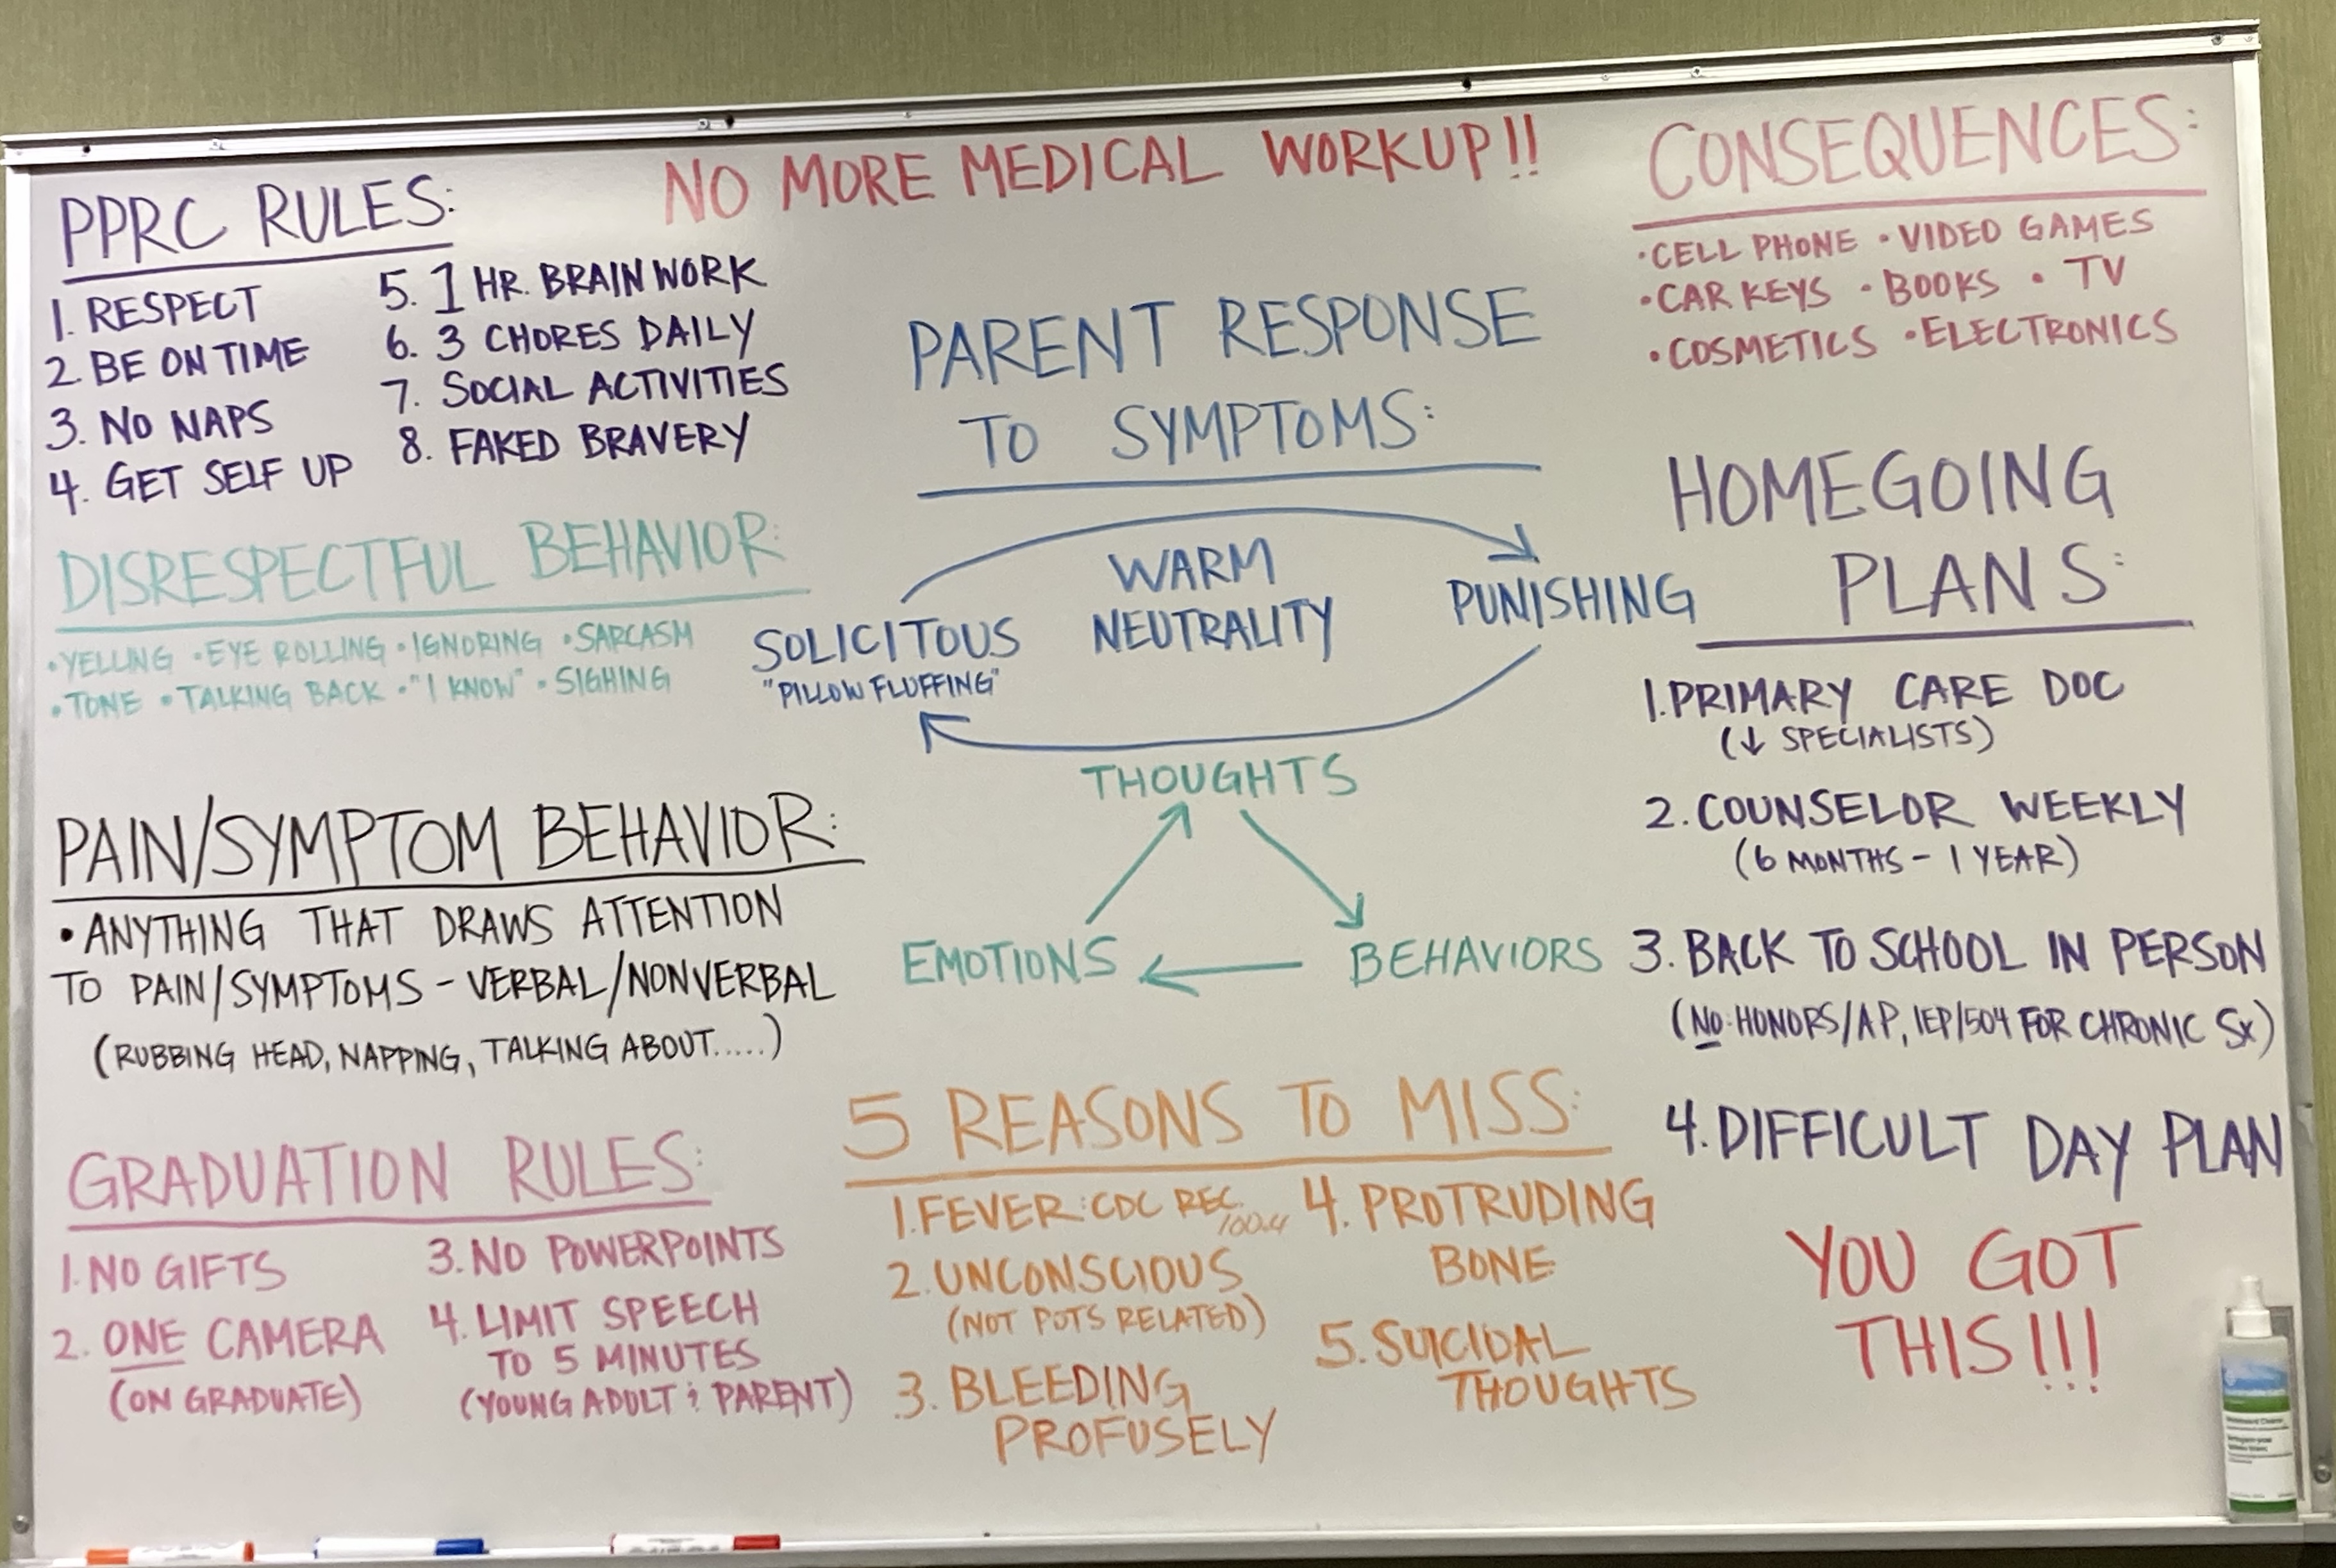 NO MORE MEDICAL WORKUP!!
PPRC RULES:
1. RESPECT
2. BE ON TIME
3. NO NAPS
4. GET SELF UP
5. 1 HR. BRAIN WORK
6. 3 CHORES DAILY
7. SOCIAL ACTIVITIES
8. FAKED BRAVERY
DISRESPECTFUL BEHAVIOR:
•YELLING •EYE ROLLING •IGNORING •SARCASM
•TONE •TALKING BACK •"I KNOW" •SIGHING
PAIN/SYMPTOM BEHAVIOR:
•ANYTHING THAT DRAWS ATTENTION
TO PAIN/SYMPTOMS - VERBAL/NONVERBAL
(RUBBING HEAD, NAPPING, TALKING ABOUT.....)
GRADUATION RULES:
1. NO GIFTS
2. ONE CAMERA
(ON GRADUATE)
3. NO POWERPOINTS
4. LIMIT SPEECH
TO 5 MINUTES
(YOUNG ADULT & PARENT)
PARENT RESPONSE
TO SYMPTOMS:
WARM
NEUTRALITY
SOLICITOUS
"PILLOW FLUFFING"
PUNISHING
THOUGHTS
EMOTIONS
BEHAVIORS
5 REASONS TO MISS:
1. FEVER: CDC REC.
100.4
2. UNCONSCIOUS
(NOT POTS RELATED)
3. BLEEDING
PROFUSELY
4. PROTRUDING
BONE
5. SUICIDAL
THOUGHTS
CONSEQUENCES:
•CELL PHONE •VIDEO GAMES
•CAR KEYS •BOOKS •TV
•COSMETICS •ELECTRONICS
HOMEGOING
PLANS:
1. PRIMARY CARE DOC
(↓ SPECIALISTS)
2. COUNSELOR WEEKLY
(6 MONTHS - 1 YEAR)
3. BACK TO SCHOOL IN PERSON
(NO: HONORS/AP, IEP/504 FOR CHRONIC SX)
4. DIFFICULT DAY PLAN
YOU GOT
THIS!!!